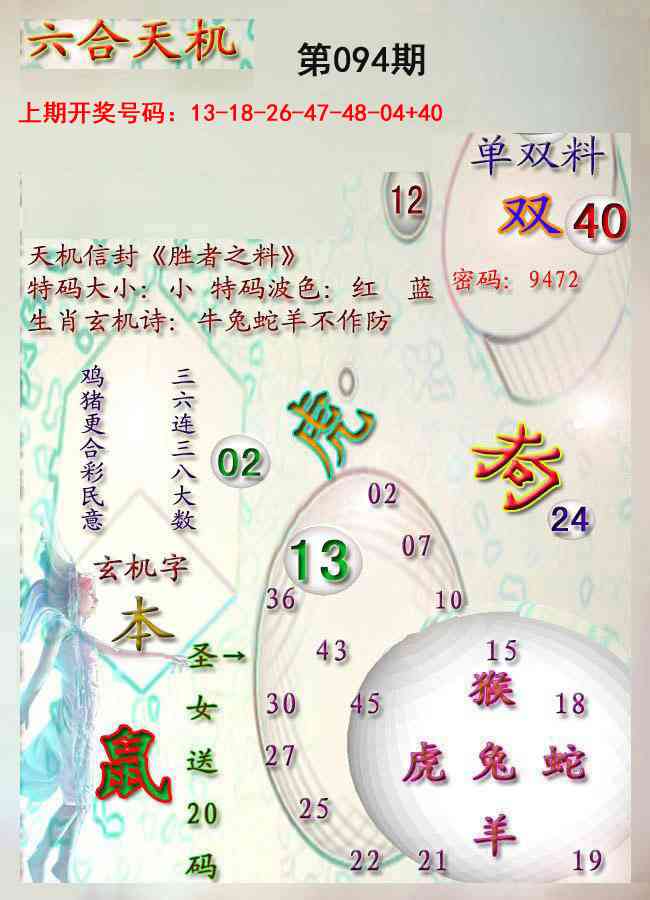 六合天机
第094期
上期开奖号码：13-18-26-47-48-04+40
单双料
双
40
12
天机信封《胜者之料》
特码大小：小 特码波色：红 蓝
密码：9472
生肖玄机诗：牛兔蛇羊不作防
鸡猪更合彩民意
三六连三八大数
02
虎
24
02
13
07
36
10
玄机字
本
圣女送20码
→
43
15
猴
30
45
18
鼠
虎 兔 蛇
27
25
羊
22
21
19